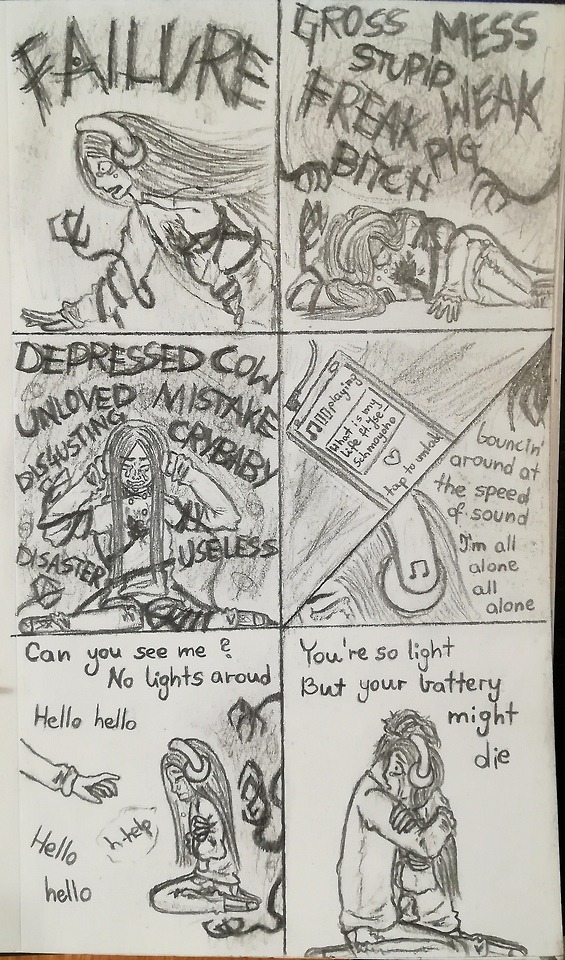 FAILURE
GROSS MESS
STUPID
FREAK WEAK
BITCH PIG
DEPRESSED COW
UNLOVED MISTAKE
DISGUSTING CRYBABY
DISASTER USELESS
playing
What is my
Life
Schmoyoho
tap to unlock
bouncin'
around at
the speed
of sound
I'm all
alone
all
alone
Can you see me?
No lights aroud
Hello hello
h-help
Hello
hello
You're so light
But your battery
might
die